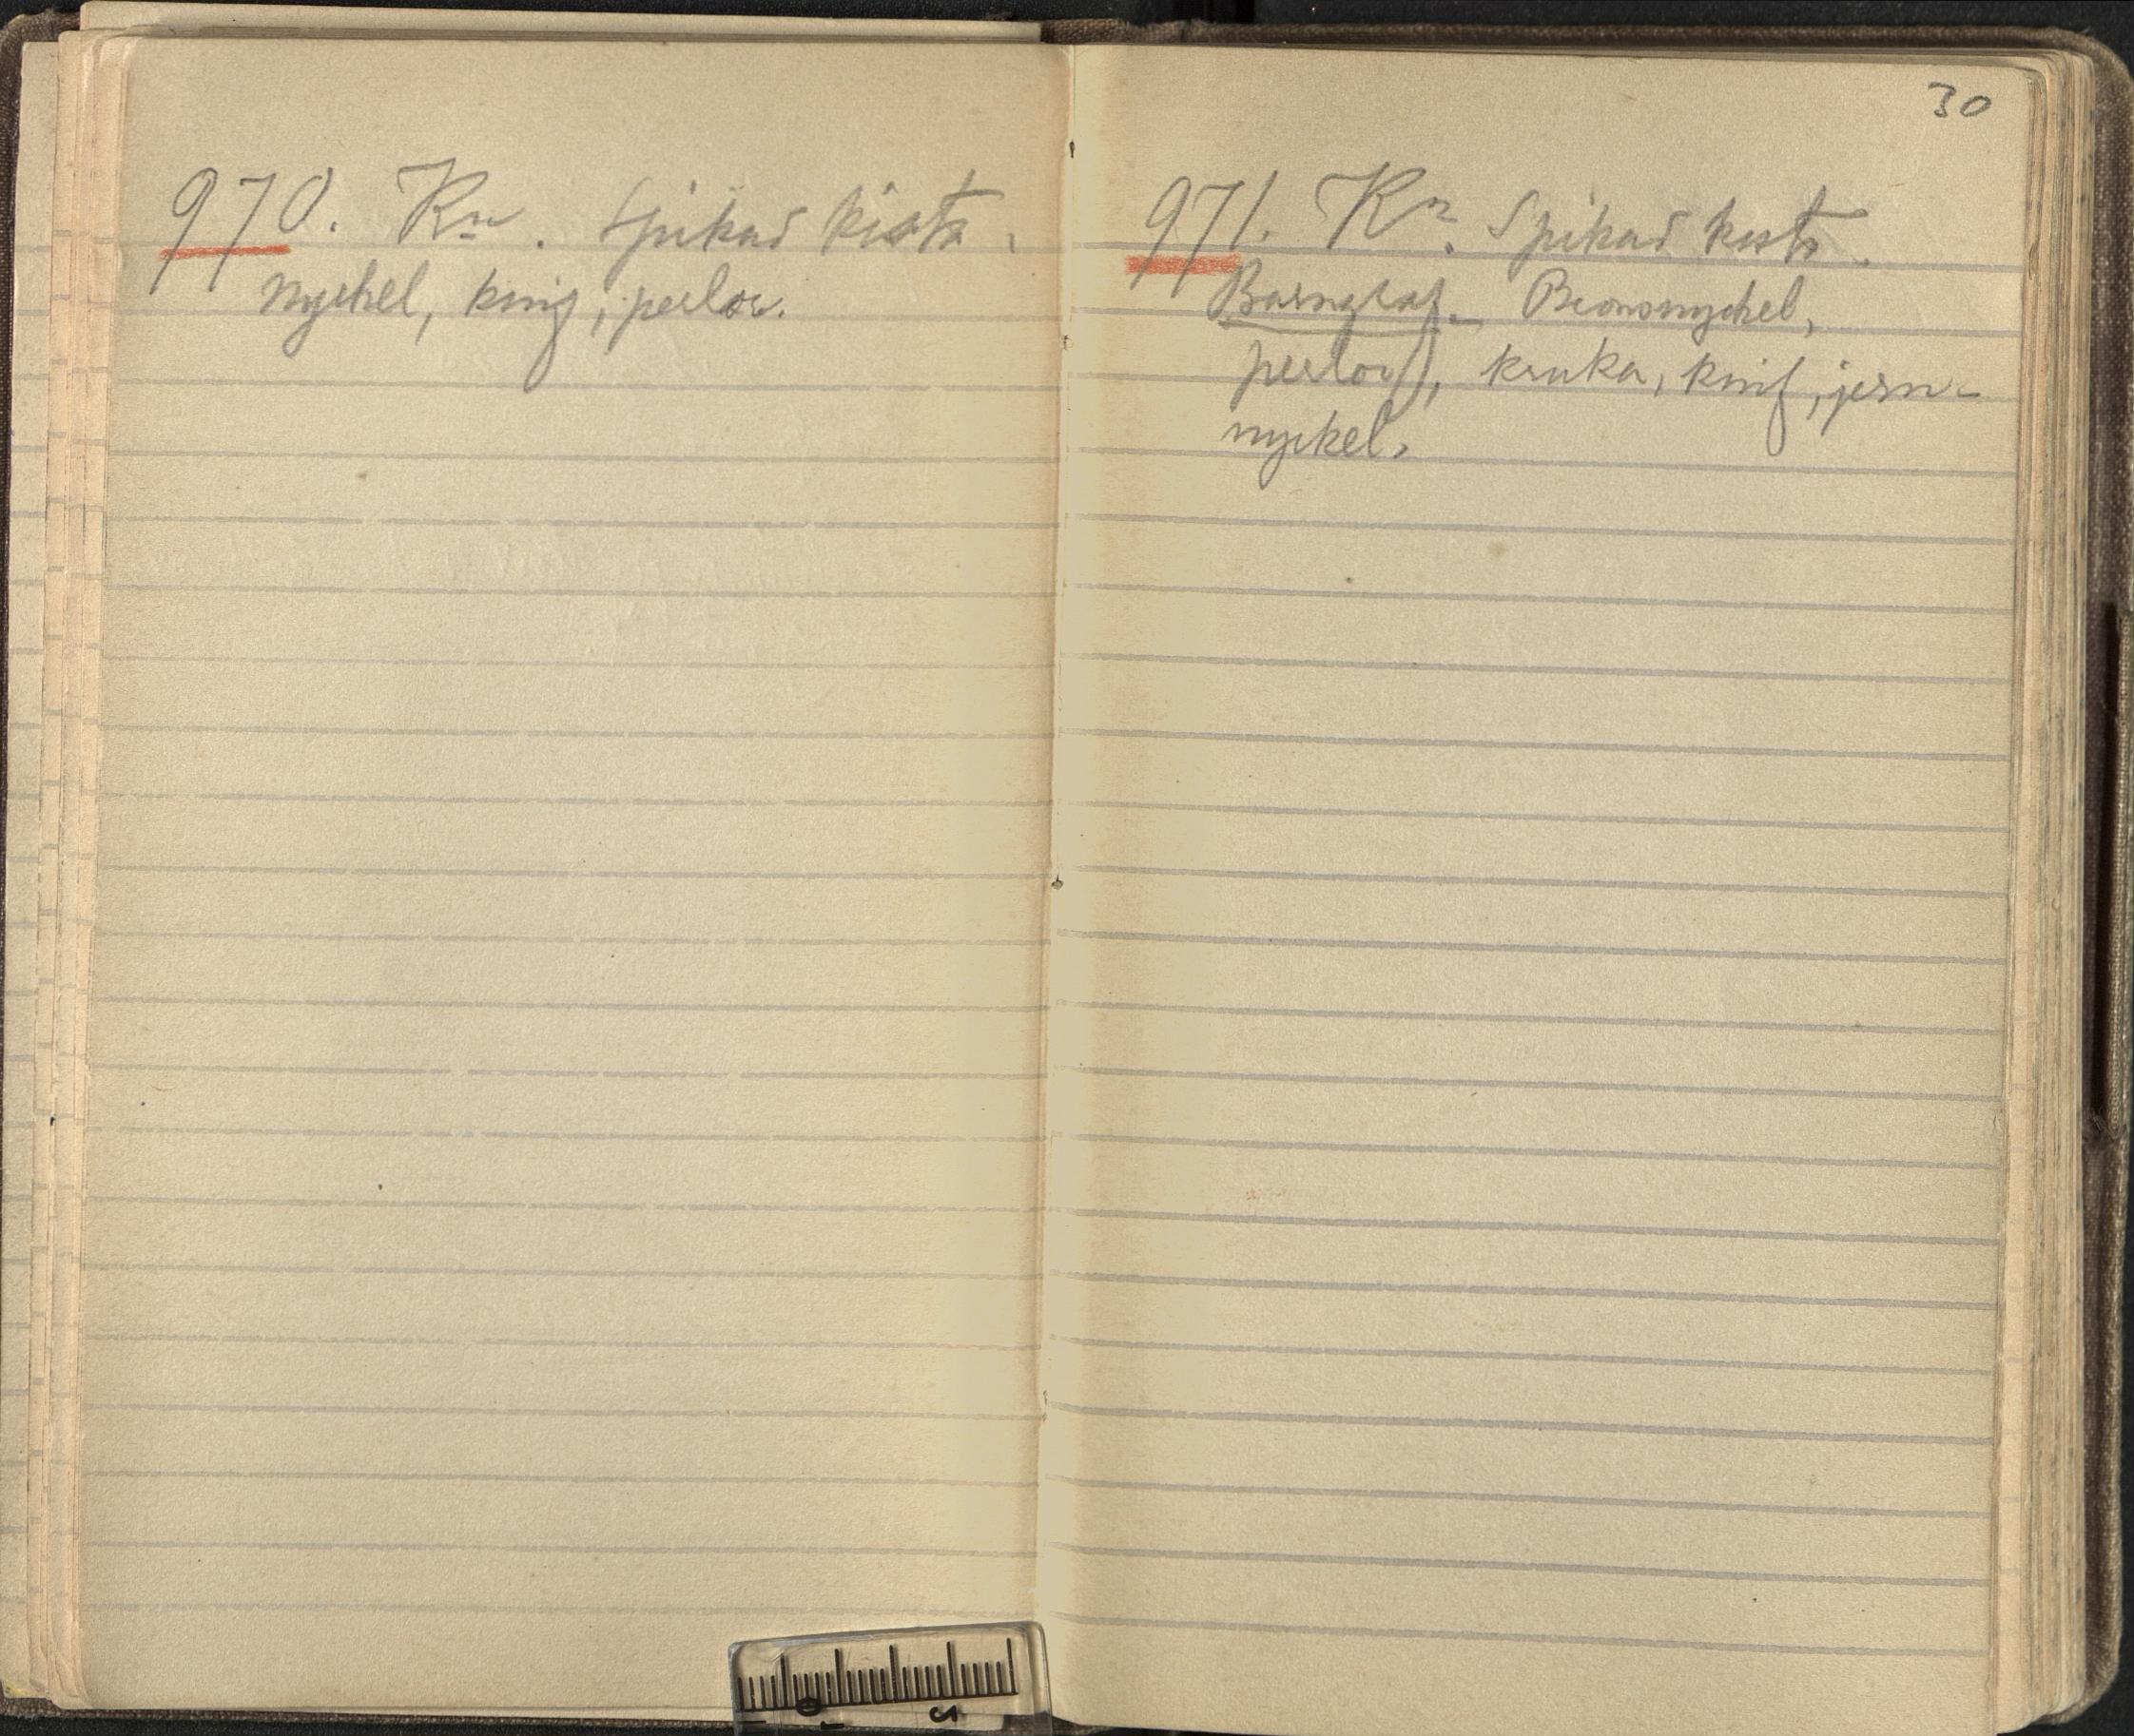 970. Kn. Spikad kista.
nyckel, knif, perlor.
30
971. Kn. Spikad kista.
Barngraf. Bronsnyckel,
perlor, kruka, knif, jern-
nyckel.